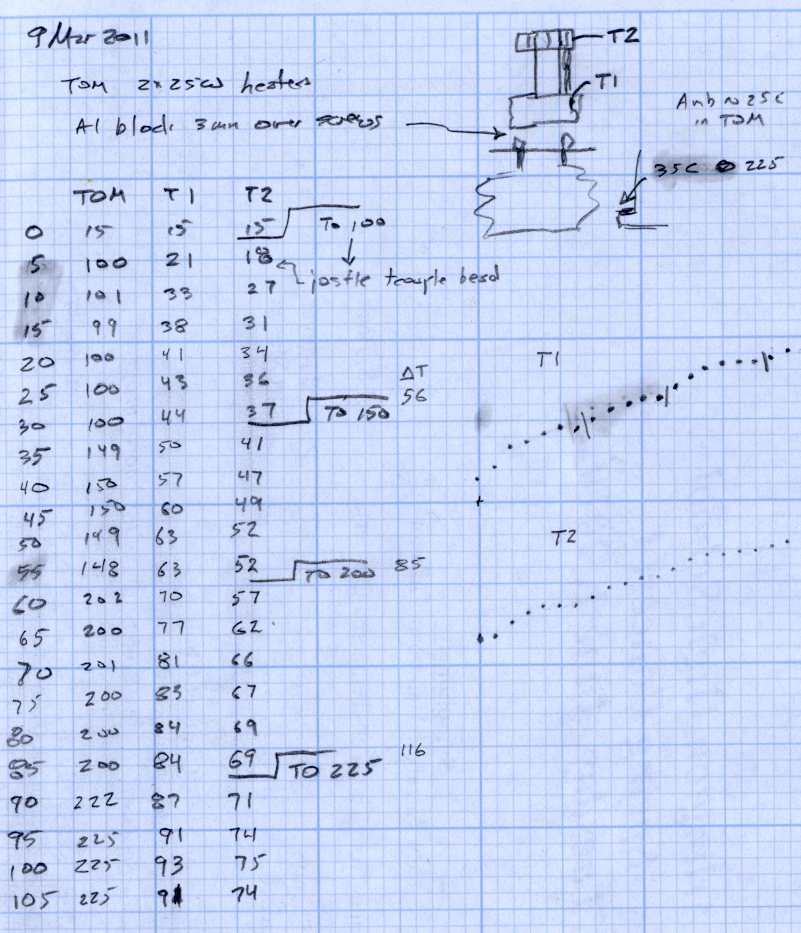 9 Mar 2011
T2
TOM 2x25W heaters
T1
Al block 3mm over screws
Amb ≈ 25C
in TOM
35C @ 225
TOM T1 T2
0 15 15 15 To 100
5 100 21 18 jostle tcouple bead
10 101 33 27
15 99 38 31
20 100 41 34 T1
25 100 43 36 ΔT
30 100 44 37 TO 150 56
35 149 50 41
40 150 57 47
45 150 60 49
50 149 63 52 T2
55 148 63 52 TO 200 85
60 202 70 57
65 200 77 62
70 201 81 66
75 200 83 67
80 200 84 69
85 200 84 69 TO 225 116
90 222 87 71
95 225 91 74
100 225 93 75
105 225 91 74